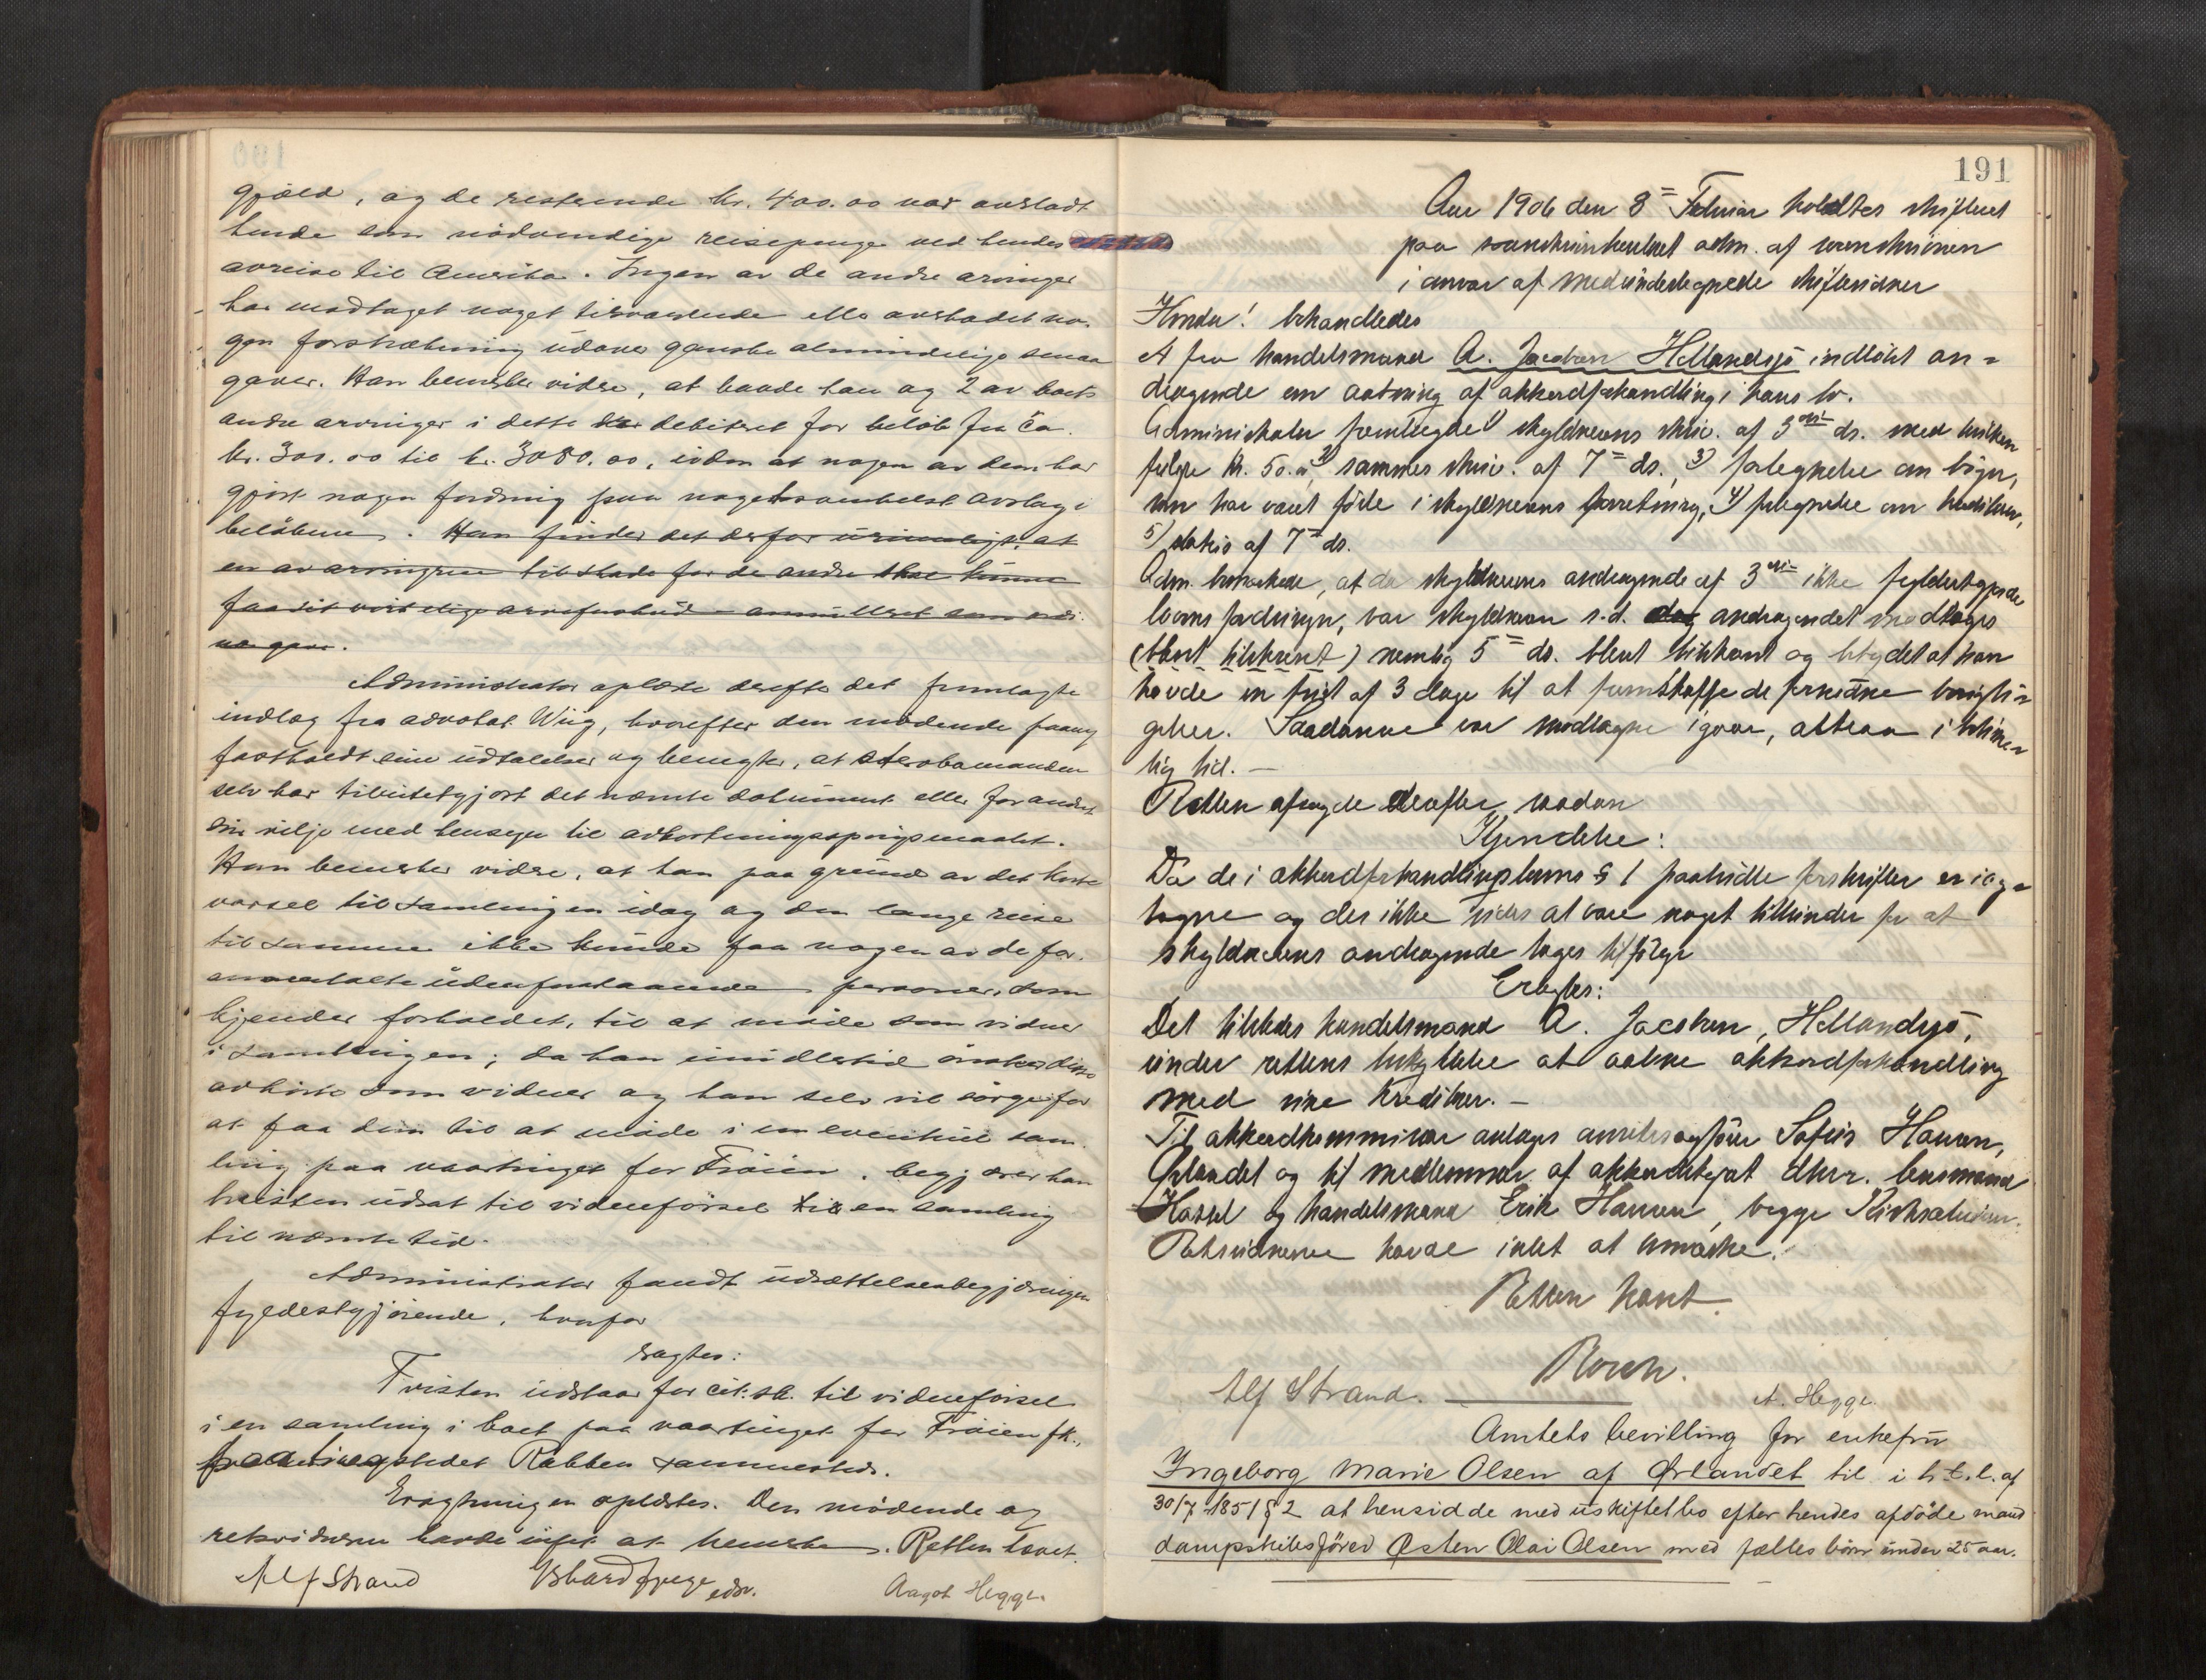 gjæld, og de resterende kr. 400.00 var avstaat
hende som nödvendige reisepenge ved hendes
avreise til Amerika. Ingen av de andre arvinger
har modtaget noget tilsvarende eller avstaaet no-
gen forstrækning udover ganske almindelige smaa
gaver. Han bemerker videre, at baade han og 2 av boets
andre arvinger i dette er debiteret for beløb fra ca.
kr. 300.00 til kr. 3080.00, uden at nogen av dem har
gjort nogen fordring paa nogetsomhelst avslag i
beløbene. Han finder det derfor urimeligt, at
en av arvingerne til skade for de andre skal kunne
faa sit
ve gave.
Administrator oplæste derefter det fremlagte
indlæg fra advokat Wiig, hvorefter den mødende paany
fastholdt sine udtalelser og benegter, at sterbomanden
selv har tilintetgjort det nævnte dokument eller forandret
sin vilje med hensyn til avkortningsspørgsmaalet.
Han bemerker videre, at han paa grund av det korte
varsel til samlingen idag og den lange reise
til samme ikke kunde faa nogen av de for-
annævnte udenforstaaende personer, som
kjender forholdet, til at møde som vidner
i samlingen; da han imidlertid ønsker disse
avhørte som vidner og han selv vil sørge for
at faa dem til at møde i en eventuel sam-
ling paa vaartinget for Frøien, begjærer han
tvisten udsat til vidneførsel til en samling
til nævnte tid.
Administrator fandt udsættelsesbegjæringen
fyldestgjørende, hvorfor
sagtes:
Tvisten udstaar for cit. sk. til vidneførsel
i en samling i boet paa vaartinget for Frøien
paa tingstedet Rabben sammesteds.
Eragtningen oplæstes. Den mødende og
retsvidnerne havde intet at bemerke. Retten hævet.
Alf Strand
edsv.
Aagot Hegge.
191
Aar 1906 den 8de Februar holdtes skifteret
paa sorenskriverkontoret adm. af sorenskriveren
i nærvær af medundertegnede skiftevidner
Hvorda! behandledes
et fra handelsmand A. Jacobsen Hellandsjö indlöbet an-
dragende om aabning af akkordforhandling i hans bo.
Administrator fremlagde 1) skyldnerens skriv. af 3die ds. med hvilken
fulgte kr. 50.00, 2) sammes skriv. af 7de ds., 3) fortegnelse om bøger,
som har været förte i skyldnerens forretning, 4) fortegnelse om kreditorer,
5) status af 7de ds.
Adm. bemerkede, at da skyldnerens andragende af 3die ikke fyldestgjorde
lovens fordringer, var skyldneren s.d. andragendet modtoges
(blevt tilskrevet) nemlig 5te ds. blevt tilskrevet og betydet at han
havde en frist af 3 dage til at fremskaffe de fornødne
gelser. Saadanne var modtagne igaar, altsaa i betime-
lig tid. –
Retten afsagde derefter saadan
Kjendelse:
Da de i akkordforhandlingslovens § 1 paabudte forskrifter er iagt-
tagne og der ikke vides at være noget tilhinder for at
skyldnerens andragende tages tilfølge
Eragtes:
Det tilstedes handelsmand A. Jacobsen, Hellandsjö,
under rettens beskyttelse at aabne akkordforhandling
med sine kreditorer. –
Til akkordkommissær antages overretssagfører Sofus Hansen,
Ørlandet og til medlemmer af akkordstyret d'hrr. lensmand
Hassel og handelsmand Erik Hansen, begge Kirksæterøren.
Retsvidnerne havde intet at bemærke.
Retten hævet.
Alf Strand.
A. Hegge.
Amtets bevilling for enkefru
Ingeborg Marie Olsen af Ørlandet til i h. t. l. af
30/7 1851 § 2 at hensidde med uskiftet bo efter hendes afdøde mand
dampskibsfører Østen Olai Olsen med fælles børn under 25 aar.